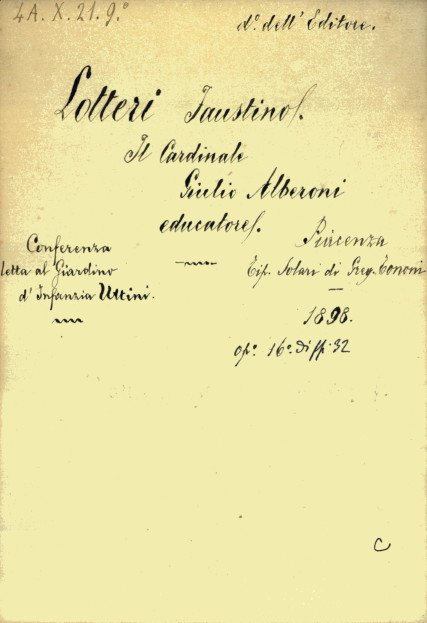 4A. X. 21. 9.°
d.° dell' Editore.
Lotteri Faustino/.
Il Cardinale
Giulio Alberoni
educatore/.
Conferenza
letta al Giardino
d' Infanzia Uttini.
Piacenza
Tip. Solari di Greg. Tononi
1898.
op.° 16.° di pp. 32
C